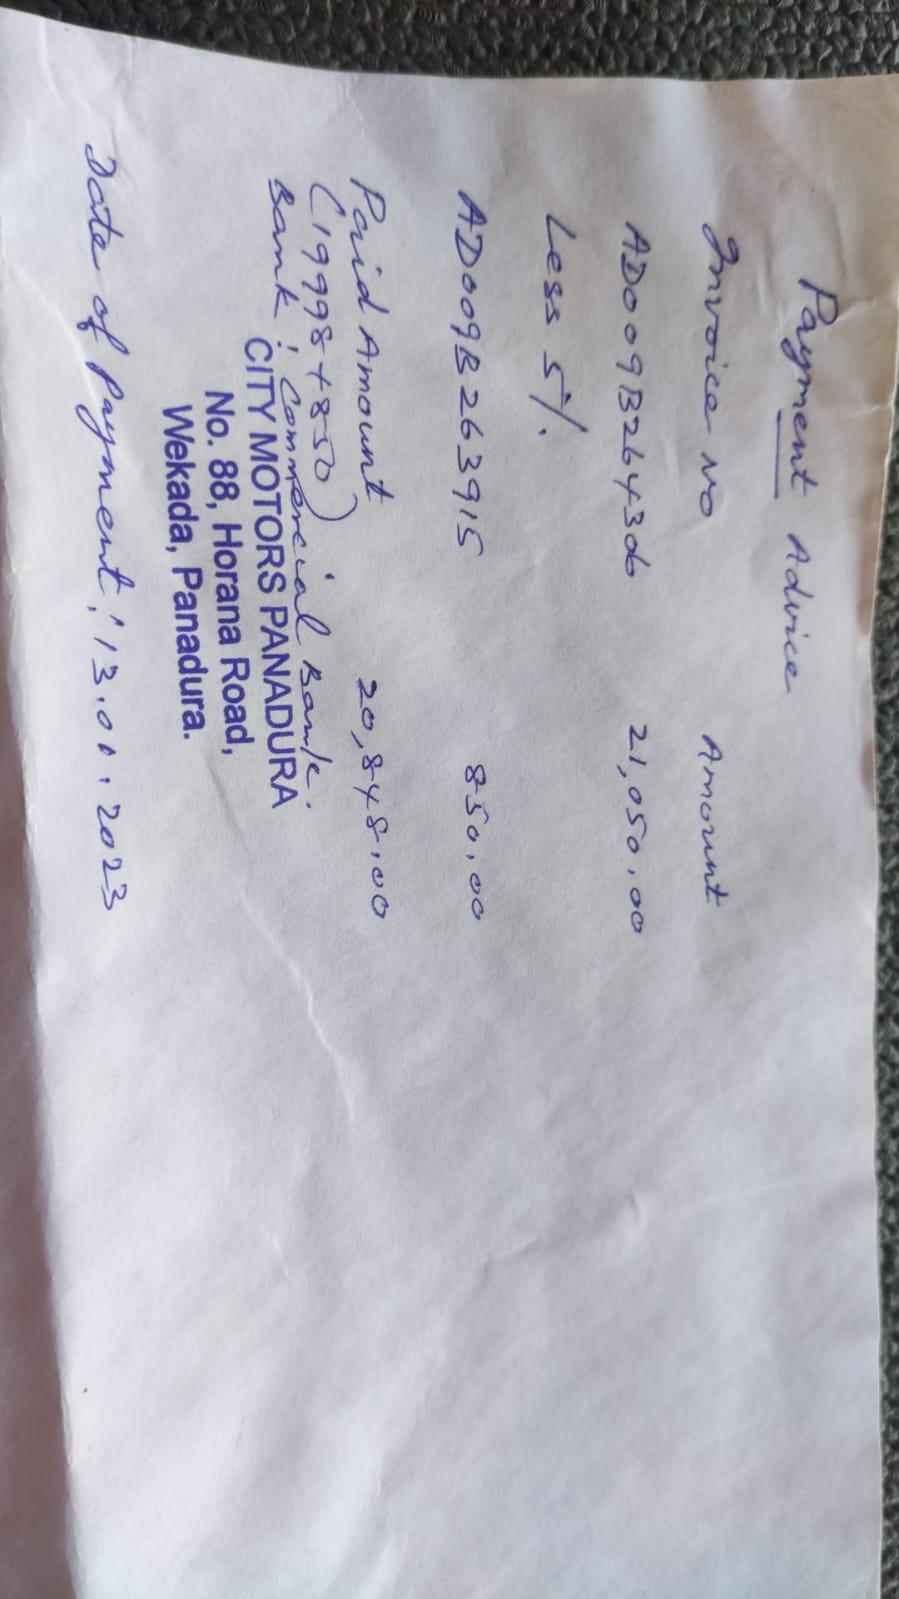 Payment Advice
Invoice No Amount
AD009B264306 21,050.00
Less 5%
AD009B263915 850.00
Paid Amount 20,848.00
(19998+850)
Bank : Commercial Bank.
CITY MOTORS PANADURA
No. 88, Horana Road,
Wekada, Panadura.
Date of Payment : 13.01.2023